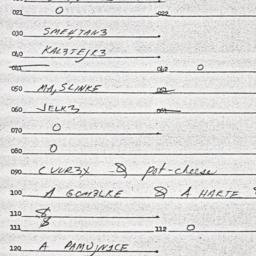 021 0 022
030 SMEHTAN3
040 KAL3TEJR3
041 042 0
050 MA,SLINKE 051
060 JELK3 061
070 0
080 0
090 CVUR3X & pot-cheese
100 A GOM3LKE & A HARTE
110
111 112 0
120 A PAMUJN1CE